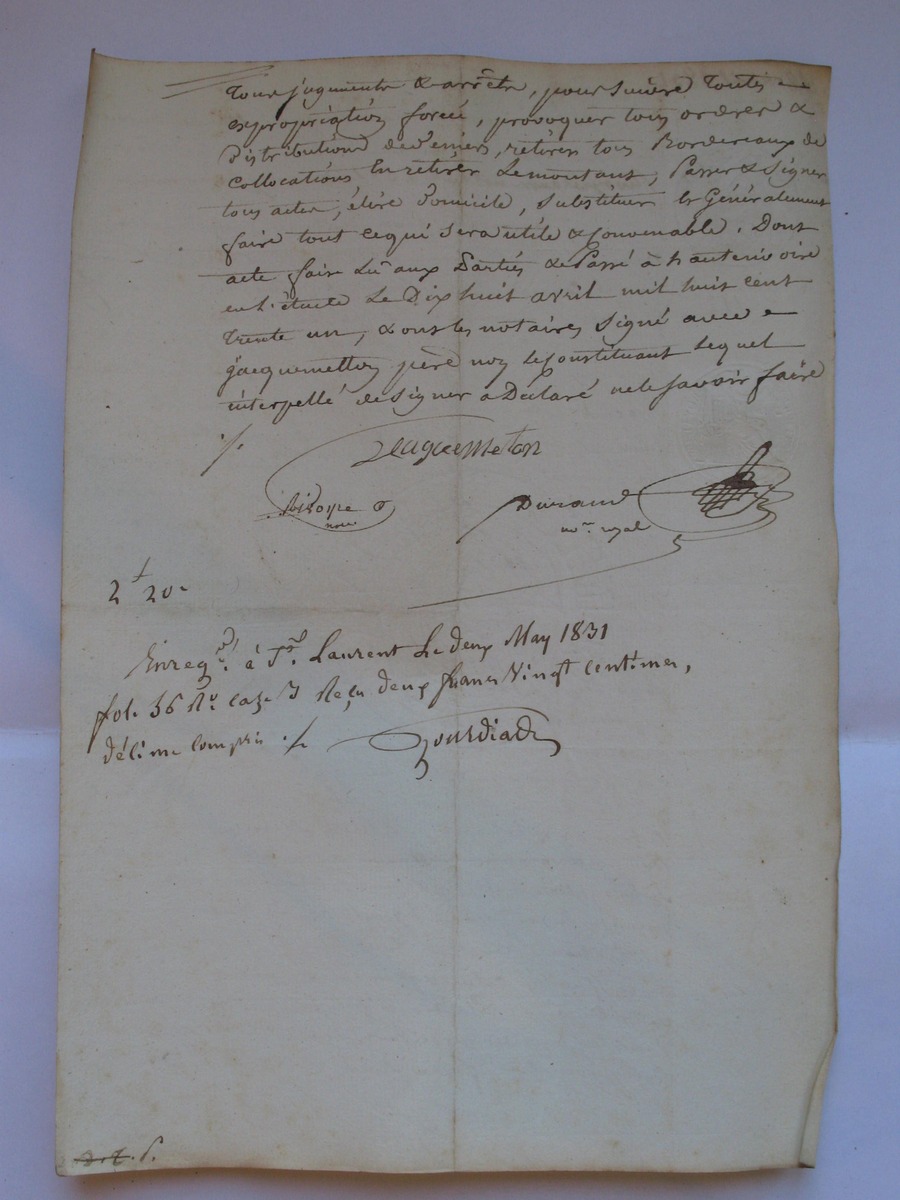 tous jugements & arrêts, poursuivre toutes
expropriation forcée, provoquer tous ordres &
Distributions de deniers, retirer tous Bordereaux de
collocations En retirer Le montant, Passer & Signer
tous actes, élire Domicile, substituer et Généralement
faire tout ce qui sera utile & Convenable. Dont
acte fait Lu aux Parties & Passé à hauterivoire
en L'étude Le Dix huit avril mil huit cent
trente un, & ont les notaires signé avec
jacquemetton père non le Constituant Lequel
interpellé de signer a Déclaré ne le savoir faire
Jacquemeton
Durand
nre royal
2f 20c
Enregré à St. Laurent Le deux May 1831
fol. 36 Ro. case 7 Reçu deux francs Vingt centimes,
décime compris